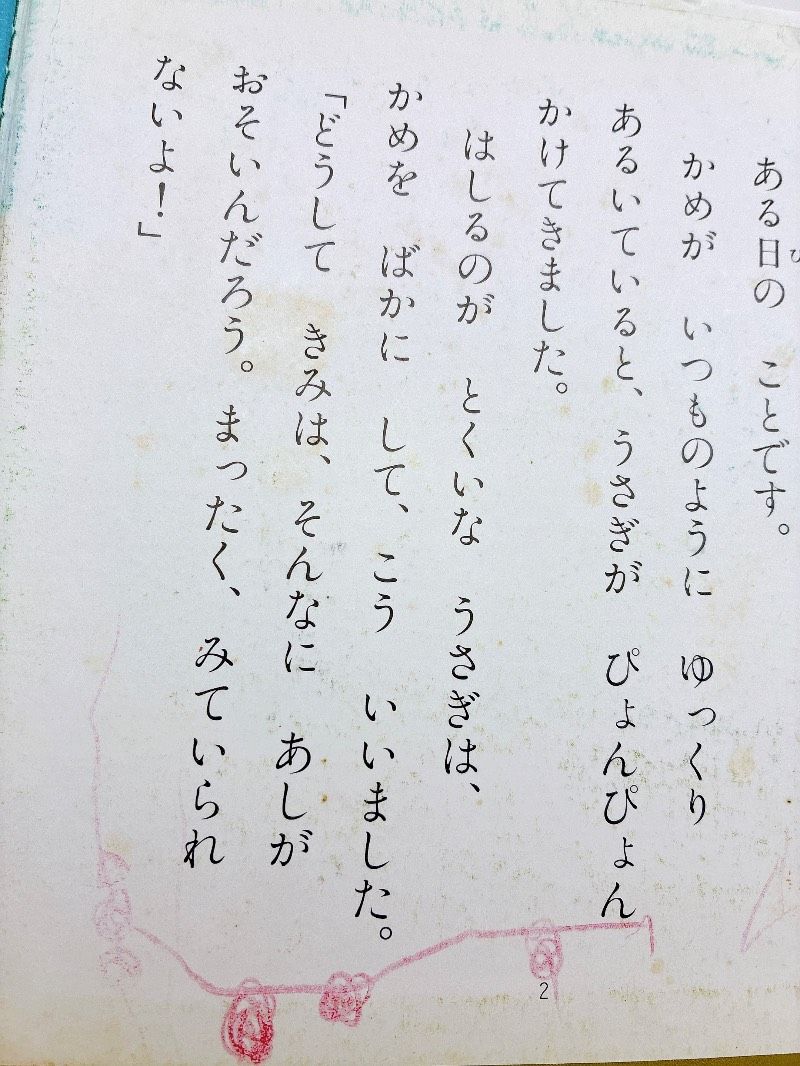 ある日の　ことです。
かめが　いつものように　ゆっくり
あるいていると、うさぎが　ぴょんぴょん
かけてきました。
はしるのが　とくいな　うさぎは、
かめを　ばかに　して、こう　いいました。
「どうして　きみは、そんなに　あしが
おそいんだろう。まったく、みていられ
ないよ！」
2